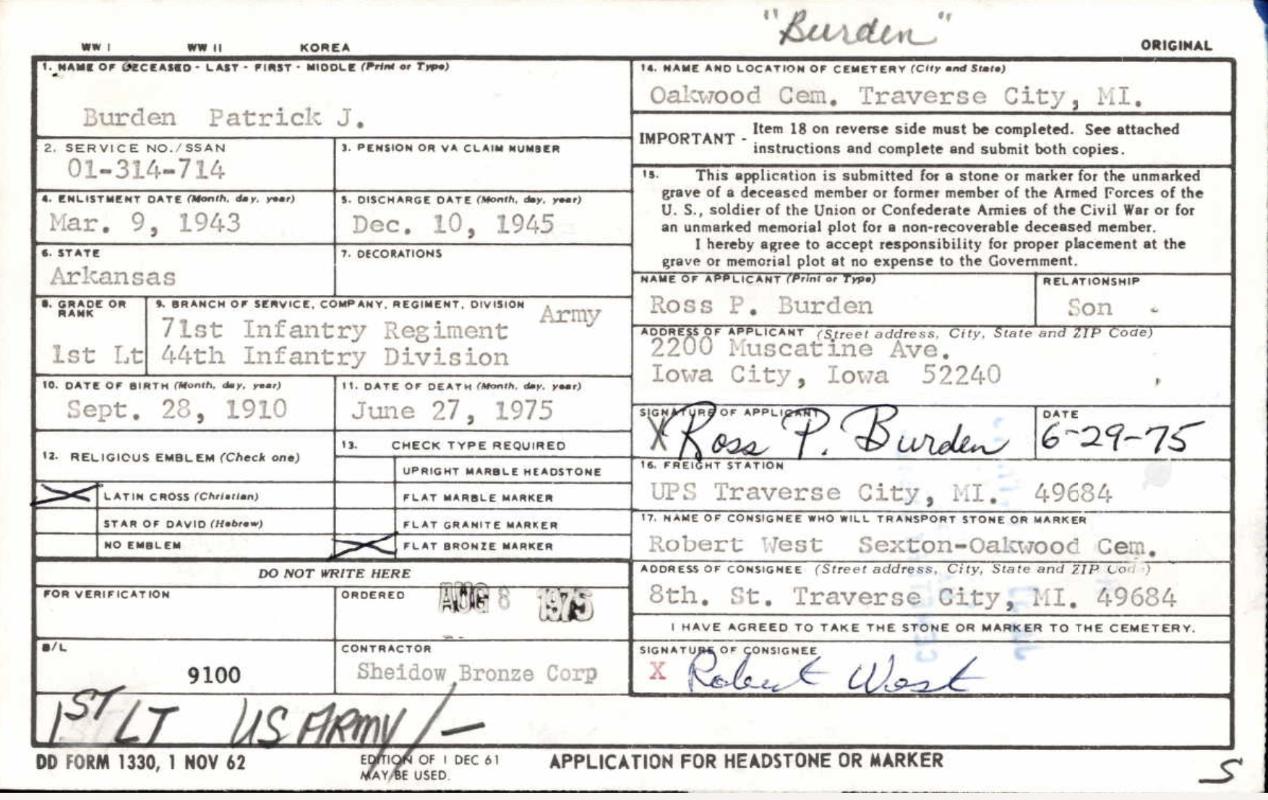 "Burden"
WW I WW II KOREA ORIGINAL
1. NAME OF DECEASED - LAST - FIRST - MIDDLE (Print or Type)
Burden Patrick J.
2. SERVICE NO./SSAN
01-314-714
3. PENSION OR VA CLAIM NUMBER
4. ENLISTMENT DATE (Month, day, year)
Mar. 9, 1943
5. DISCHARGE DATE (Month, day, year)
Dec. 10, 1945
6. STATE
Arkansas
7. DECORATIONS
8. GRADE OR
RANK
1st Lt
9. BRANCH OF SERVICE, COMPANY, REGIMENT, DIVISION
Army
71st Infantry Regiment
44th Infantry Division
10. DATE OF BIRTH (Month, day, year)
Sept. 28, 1910
11. DATE OF DEATH (Month, day, year)
June 27, 1975
12. RELIGIOUS EMBLEM (Check one)
LATIN CROSS (Christian)
STAR OF DAVID (Hebrew)
NO EMBLEM
13. CHECK TYPE REQUIRED
UPRIGHT MARBLE HEADSTONE
FLAT MARBLE MARKER
FLAT GRANITE MARKER
FLAT BRONZE MARKER
DO NOT WRITE HERE
FOR VERIFICATION
ORDERED
AUG 8 1975
B/L
9100
CONTRACTOR
Sheidow Bronze Corp
14. NAME AND LOCATION OF CEMETERY (City and State)
Oakwood Cem. Traverse City, MI.
IMPORTANT - Item 18 on reverse side must be completed. See attached
instructions and complete and submit both copies.
15. This application is submitted for a stone or marker for the unmarked
grave of a deceased member or former member of the Armed Forces of the
U. S., soldier of the Union or Confederate Armies of the Civil War or for
an unmarked memorial plot for a non-recoverable deceased member.
I hereby agree to accept responsibility for proper placement at the
grave or memorial plot at no expense to the Government.
NAME OF APPLICANT (Print or Type)
Ross P. Burden
RELATIONSHIP
Son
ADDRESS OF APPLICANT (Street address, City, State and ZIP Code)
2200 Muscatine Ave.
Iowa City, Iowa 52240
SIGNATURE OF APPLICANT
X Ross P. Burden
DATE
6-29-75
16. FREIGHT STATION
UPS Traverse City, MI. 49684
17. NAME OF CONSIGNEE WHO WILL TRANSPORT STONE OR MARKER
Robert West Sexton-Oakwood Cem.
ADDRESS OF CONSIGNEE (Street address, City, State and ZIP Code)
8th. St. Traverse City, MI. 49684
I HAVE AGREED TO TAKE THE STONE OR MARKER TO THE CEMETERY.
SIGNATURE OF CONSIGNEE
X Robert West
1ST LT US ARMY/-
DD FORM 1330, 1 NOV 62
EDITION OF 1 DEC 61
MAY BE USED.
APPLICATION FOR HEADSTONE OR MARKER
S